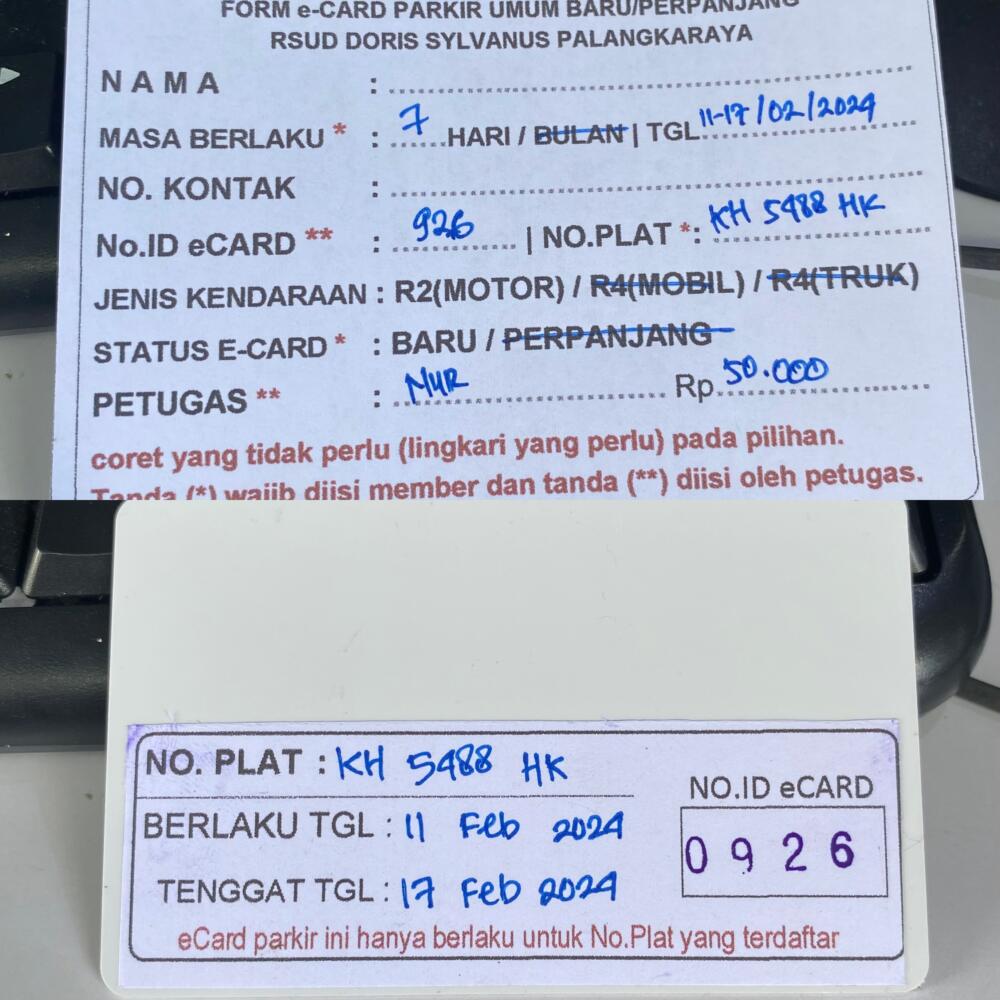 FORM e-CARD PARKIR UMUM BARU/PERPANJANG
RSUD DORIS SYLVANUS PALANGKARAYA
N A M A :
MASA BERLAKU * : 7 HARI / BULAN | TGL 11-17/02/2024
NO. KONTAK :
No.ID eCARD ** : 926 | NO.PLAT *: KH 5488 HK
JENIS KENDARAAN : R2(MOTOR) / R4(MOBIL) / R4(TRUK)
STATUS E-CARD * : BARU / PERPANJANG
PETUGAS ** : MUR Rp. 50.000
coret yang tidak perlu (lingkari yang perlu) pada pilihan.
Tanda (*) wajib diisi member dan tanda (**) diisi oleh petugas.
NO. PLAT : KH 5488 HK
BERLAKU TGL : 11 Feb 2024
TENGGAT TGL : 17 Feb 2024
NO.ID eCARD
0926
eCard parkir ini hanya berlaku untuk No.Plat yang terdaftar